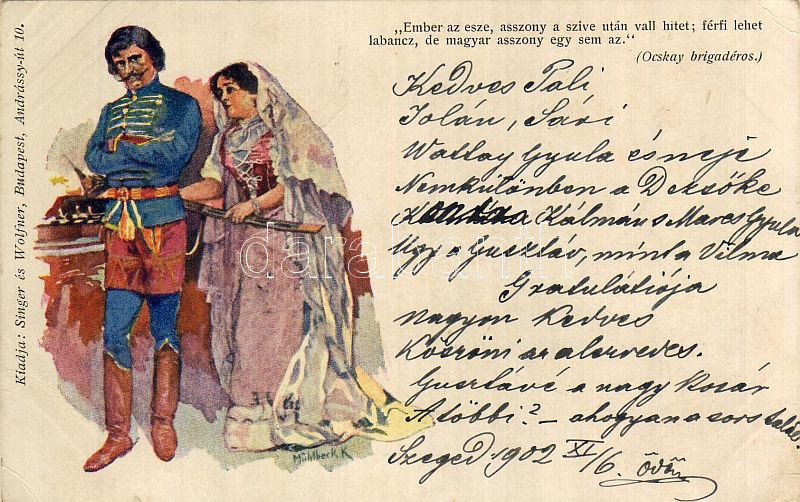 „Ember az esze, asszony a szive után vall hitet; férfi lehet
labancz, de magyar asszony egy sem az.“
(Ocskay brigadéros.)
Kedves Pali
Jolán, Sári
Wattay Gyula és neje
Nemkülönben a Dezsőke
Kálmán s Marcs Gyula
Ugy a Gusztáv, mint a Vilma
Gratulátiója
nagyon kedves
Köszöni az alezredes.
Gusztávé a nagy kosár
A többi? – ahogyan a sors
Szeged 1902 XI/6. Ödön
Mühlbeck K
Kiadja: Singer és Wolfner, Budapest, Andrássy-út 10.
darabanth